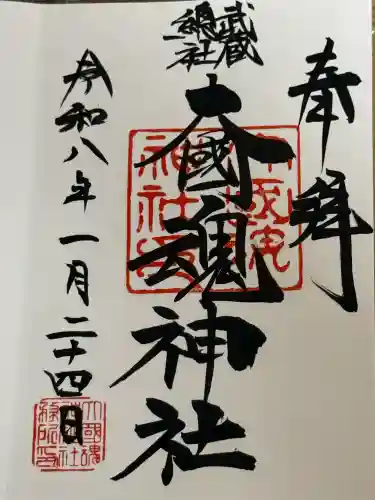 奉拝
武蔵
總社
大國魂神社
令和八年一月二十四日